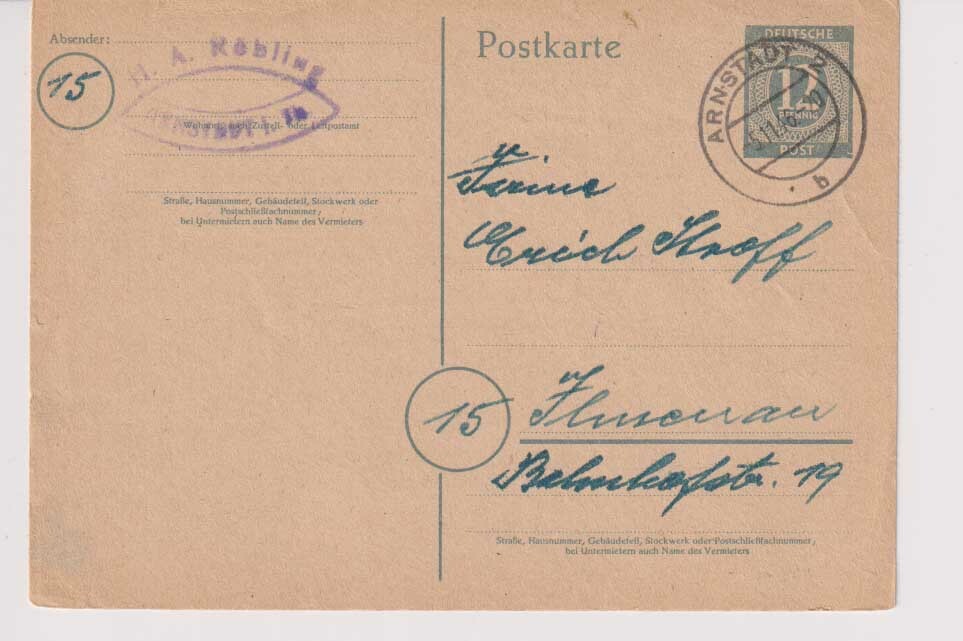 Absender:
15
H. A. Röbling
ARNSTADT i. Th.
Wohnort, auch Zustell- oder Leitpostamt
Straße, Hausnummer, Gebäudeteil, Stockwerk oder
Postschließfachnummer;
bei Untermietern auch Name des Vermieters
Postkarte
DEUTSCHE
12
PFENNIG
POST
ARNSTADT 2
b
Firma
Erich Stroff
15
Ilmenau
Bahnhofstr. 19
Straße, Hausnummer, Gebäudeteil, Stockwerk oder Postschließfachnummer;
bei Untermietern auch Name des Vermieters